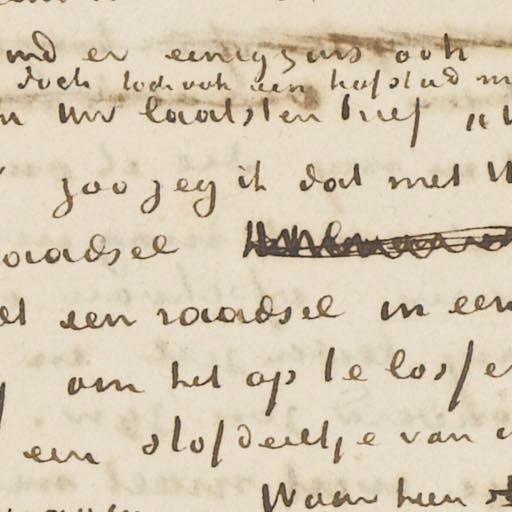 er eenigzins ook
doch toch ook een hofstad
Uw laatsten brief „
zoo zeg ik dat met
raadsel
een raadsel in een
om het op te lossen
een stofdeeltje van
Waar heen